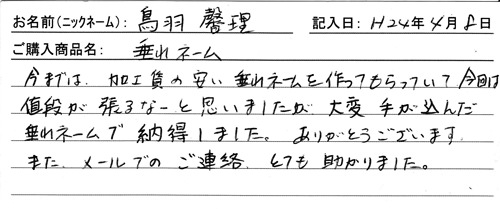 お名前(ニックネーム): 鳥羽 馨理 記入日: H24年4月8日
ご購入商品名: 垂れネーム
今までは、加工賃の安い垂れネームを作ってもらっていて今回は
値段が張るなーと思いましたが、大変手が込んだ
垂れネームで納得しました。ありがとうございます。
また、メールでのご連絡、とても助かりました。